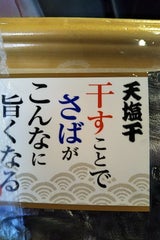 天塩干
干すことで
さばが
こんなに
旨くなる